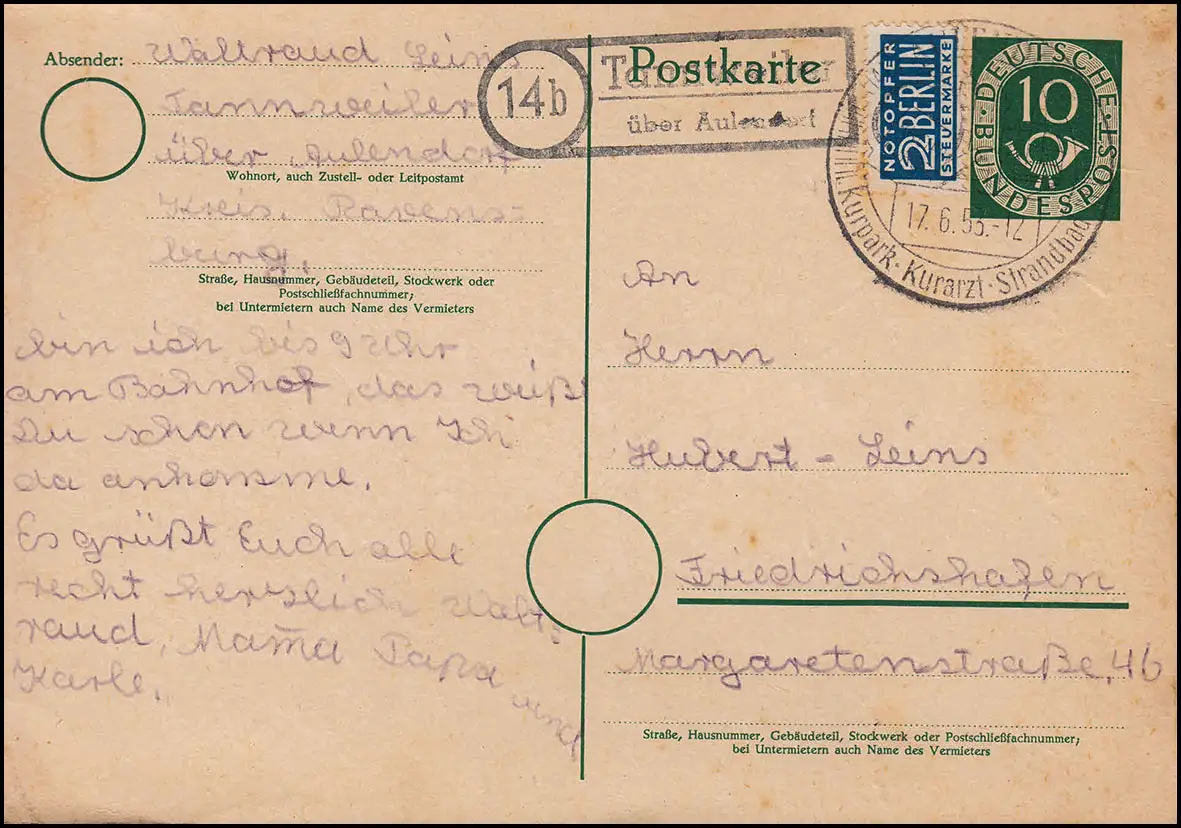 Absender: Waltraud Leins
Tannweiler
über Aulendorf
Wohnort, auch Zustell- oder Leitpostamt
Kreis, Ravens-
burg,
Straße, Hausnummer, Gebäudeteil, Stockwerk oder
Postschließfachnummer;
bei Untermietern auch Name des Vermieters
bin ich bis 9 Uhr
am Bahnhof, das weißt
Du schon wenn Ich
da ankomme.
Es grüßt Euch alle
recht herzlich Walt=
raud, Mama Papa und
Karle.
14b
Tannweiler
über Aulendorf
Postkarte
NOTOPFER
2 BERLIN
STEUERMARKE
DEUTSCHE
BUNDESPOST
10
17.6.53.-12
Kurpark · Kurarzt · Strandbad
An
Herrn
Hubert - Leins
Friedrichshafen
Margaretenstraße, 46
Straße, Hausnummer, Gebäudeteil, Stockwerk oder Postschließfachnummer;
bei Untermietern auch Name des Vermieters